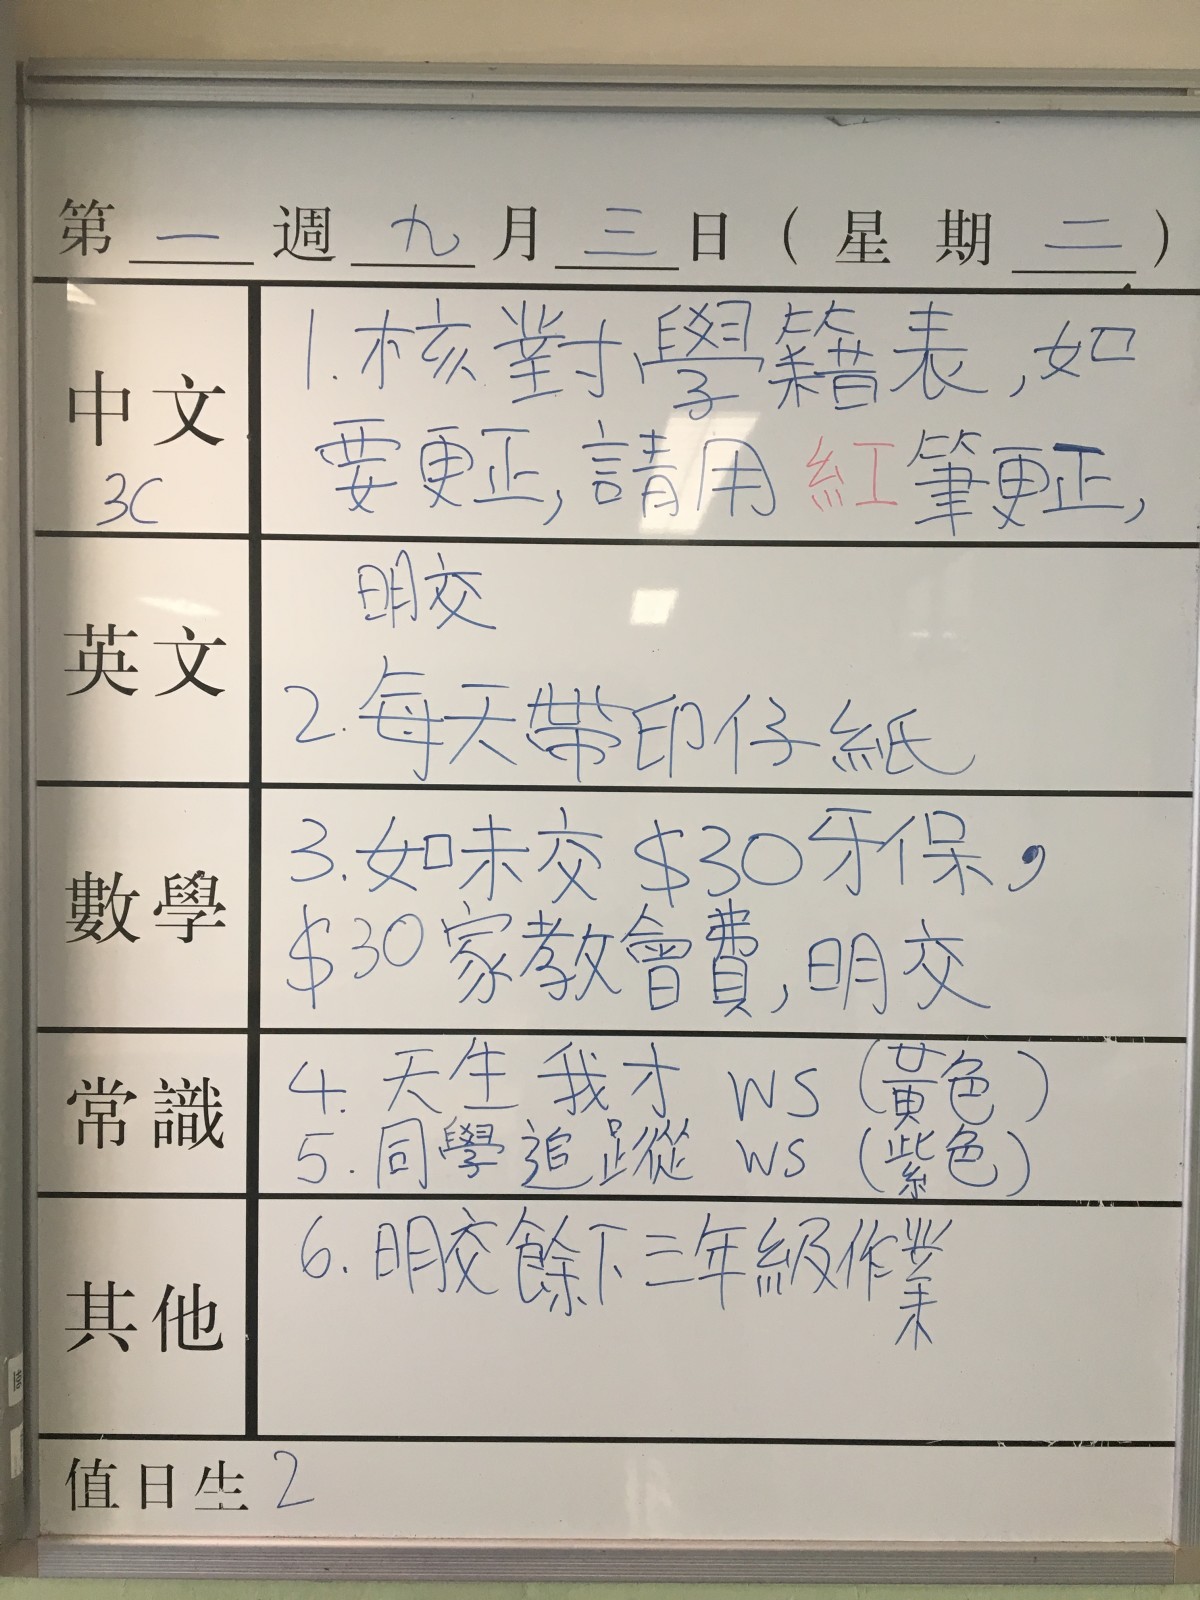 第一週九月三日(星期二)
中文
3C
1.核對學籍表,如
要更正,請用紅筆更正,
英文
明交
2.每天帶印仔紙
數學
3.如未交$30牙保,
$30家教會費,明交
常識
4.天生我才 WS (黃色)
5.同學追蹤 WS (紫色)
其他
6.明交餘下三年級作業
值日生 2